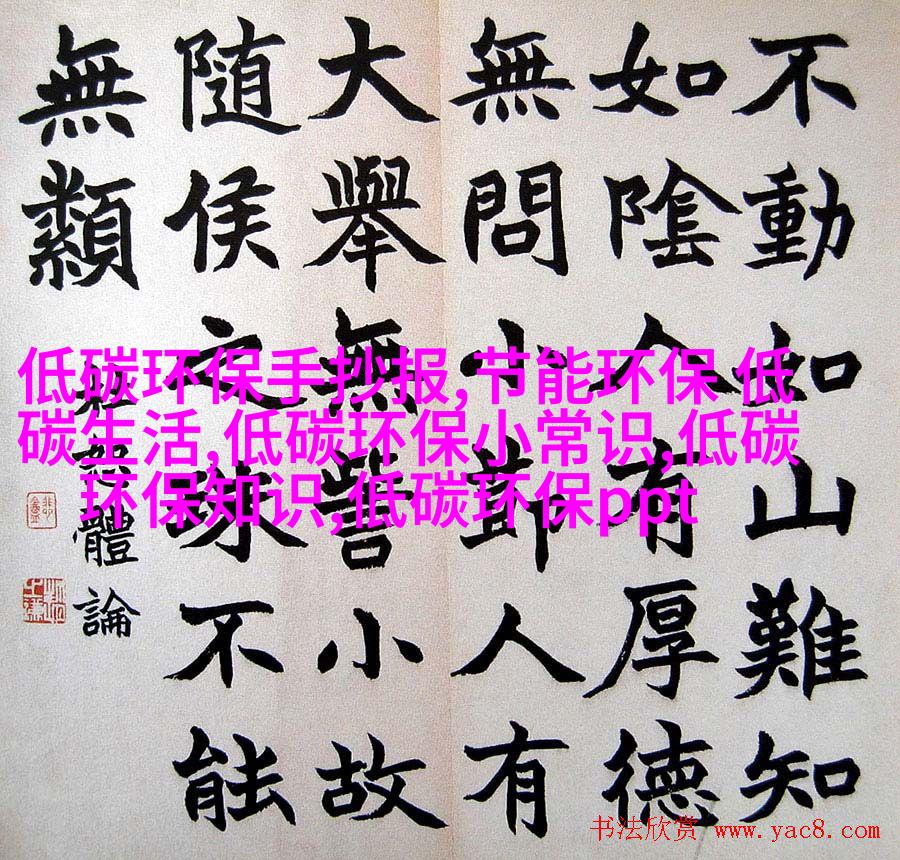 不動如山難知
如陰人有厚德
無問小節人有
大舉無訾小故
隨侯之珠不能
無纇
杜恕體論
低碳环保手抄报,节能环保 低
碳生活,低碳环保小常识,低碳
环保知识,低碳环保ppt
书法欣赏 www.yac8.com